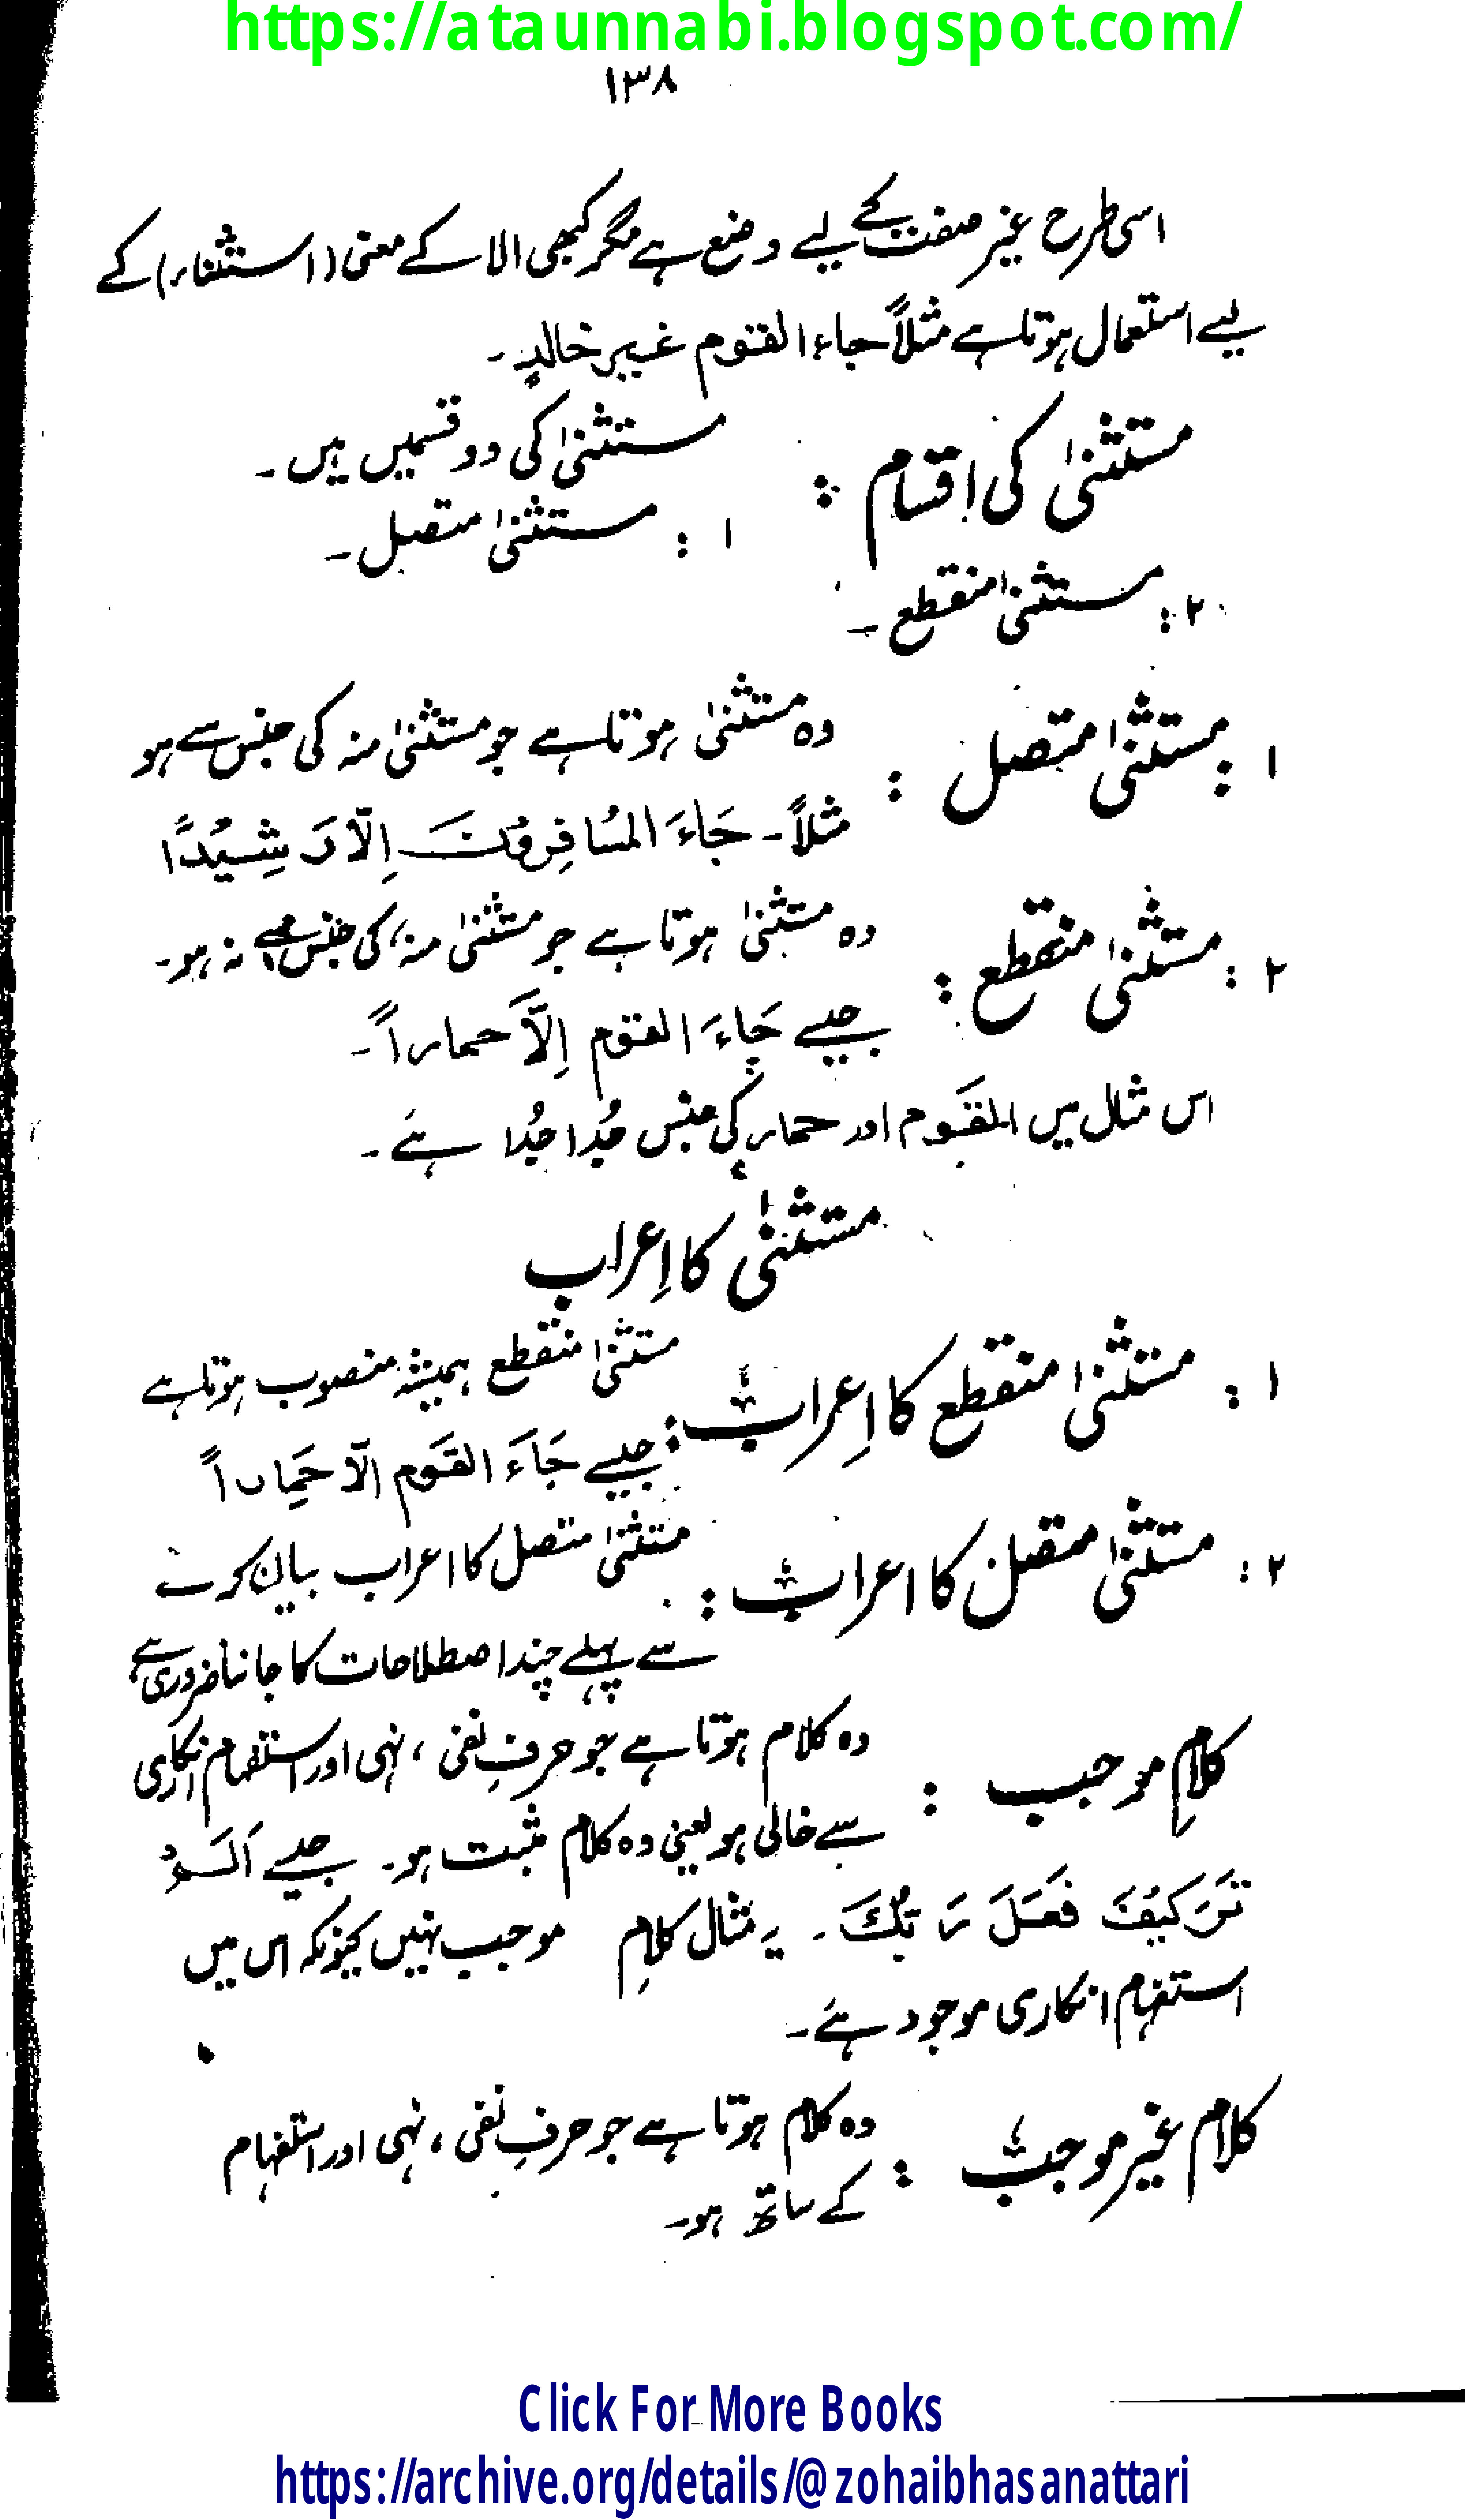 https://ataunnabi.blogspot.com/
۱۳۸
اسی طرح غیر صفت کے لیے وضع ہے مگر کبھی الا کے معنی (استثناء) کے
لیے استعمال ہوتا ہے مثلاً جاء القوم غیر خالدٍ۔
مستثنیٰ کی اقسام : مستثنیٰ کی دو قسمیں ہیں۔
۱ : مستثنیٰ متصل۔
۲ : مستثنیٰ منقطع۔
۱ : مستثنیٰ متصل : وہ مستثنیٰ ہوتا ہے جو مستثنیٰ منہ کی جنس سے ہو
مثلاً۔ جَاءَ المُسَافِرُونَ اِلّا رَشِیْدًا
۲ : مستثنیٰ منقطع : وہ مستثنیٰ ہوتا ہے جو مستثنیٰ منہ کی جنس سے نہ ہو۔
جیسے جَاءَ القوم اِلَّا حماراً۔
اس مثال میں القَوم اور حمار کی جنس جُدا جُدا ہے۔
مستثنیٰ کا اِعراب
۱ : مستثنیٰ منقطع کا اِعراب : مستثنیٰ منقطع ہمیشہ منصوب ہوتا ہے
جیسے جَاءَ القَوم الّا حِمَاراً
۲ : مستثنیٰ متصل کا اعراب : مستثنیٰ متصل کا اعراب بیان کرنے
سے پہلے چند اصطلاحات کا جاننا ضروری ہے
کلامِ موجب : وہ کلام ہوتا ہے جو حرفِ نفی ، نہی اور استفہام انکاری
سے خالی ہو یعنی وہ کلام مثبت ہو۔ جیسے اَلَمْ
تَرَ کَیْفَ فَعَلَ رَبُّکَ۔ یہ مثال کلامِ موجب نہیں کیونکہ اس میں
استفہام انکاری موجود ہے۔
کلام غیر موجب : وہ کلام ہوتا ہے جو حرفِ نفی ، نہی اور استفہام
کے ساتھ ہو۔
Click For More Books
https://archive.org/details/@zohaibhasanattari